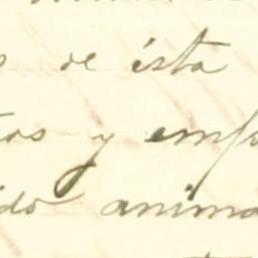 de ésta
tos y emp
ido anima